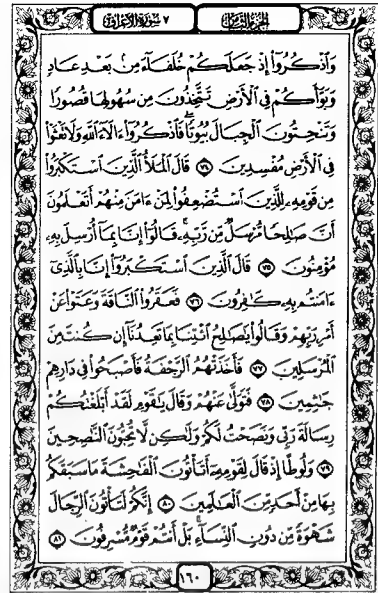 الجزء الثامن
٧ سورة الأعراف
وَاذْكُرُوٓا۟ إِذْ جَعَلَكُمْ خُلَفَآءَ مِنۢ بَعْدِ عَادٍ
وَبَوَّأَكُمْ فِى الْأَرْضِ تَتَّخِذُونَ مِن سُهُولِهَا قُصُورًا
وَتَنْحِتُونَ الْجِبَالَ بُيُوتًا ۖ فَاذْكُرُوٓا۟ ءَالَآءَ اللَّهِ وَلَا تَعْثَوْا۟
فِى الْأَرْضِ مُفْسِدِينَ ٧٤ قَالَ الْمَلَأُ الَّذِينَ اسْتَكْبَرُوا۟
مِن قَوْمِهِۦ لِلَّذِينَ اسْتُضْعِفُوا۟ لِمَنْ ءَامَنَ مِنْهُمْ أَتَعْلَمُونَ
أَنَّ صَٰلِحًا مُّرْسَلٌ مِّن رَّبِّهِۦ ۚ قَالُوٓا۟ إِنَّا بِمَآ أُرْسِلَ بِهِۦ
مُؤْمِنُونَ ٧٥ قَالَ الَّذِينَ اسْتَكْبَرُوٓا۟ إِنَّا بِالَّذِىٓ
ءَامَنتُم بِهِۦ كَٰفِرُونَ ٧٦ فَعَقَرُوا۟ النَّاقَةَ وَعَتَوْا۟ عَنْ
أَمْرِ رَبِّهِمْ وَقَالُوا۟ يَٰصَٰلِحُ ائْتِنَا بِمَا تَعِدُنَآ إِن كُنتَ مِنَ
الْمُرْسَلِينَ ٧٧ فَأَخَذَتْهُمُ الرَّجْفَةُ فَأَصْبَحُوا۟ فِى دَارِهِمْ
جَٰثِمِينَ ٧٨ فَتَوَلَّىٰ عَنْهُمْ وَقَالَ يَٰقَوْمِ لَقَدْ أَبْلَغْتُكُمْ
رِسَالَةَ رَبِّى وَنَصَحْتُ لَكُمْ وَلَٰكِن لَّا تُحِبُّونَ النَّٰصِحِينَ
٧٩ وَلُوطًا إِذْ قَالَ لِقَوْمِهِۦٓ أَتَأْتُونَ الْفَٰحِشَةَ مَا سَبَقَكُم
بِهَا مِنْ أَحَدٍ مِّنَ الْعَٰلَمِينَ ٨٠ إِنَّكُمْ لَتَأْتُونَ الرِّجَالَ
شَهْوَةً مِّن دُونِ النِّسَآءِ ۚ بَلْ أَنتُمْ قَوْمٌ مُّسْرِفُونَ ٨١
١٦٠